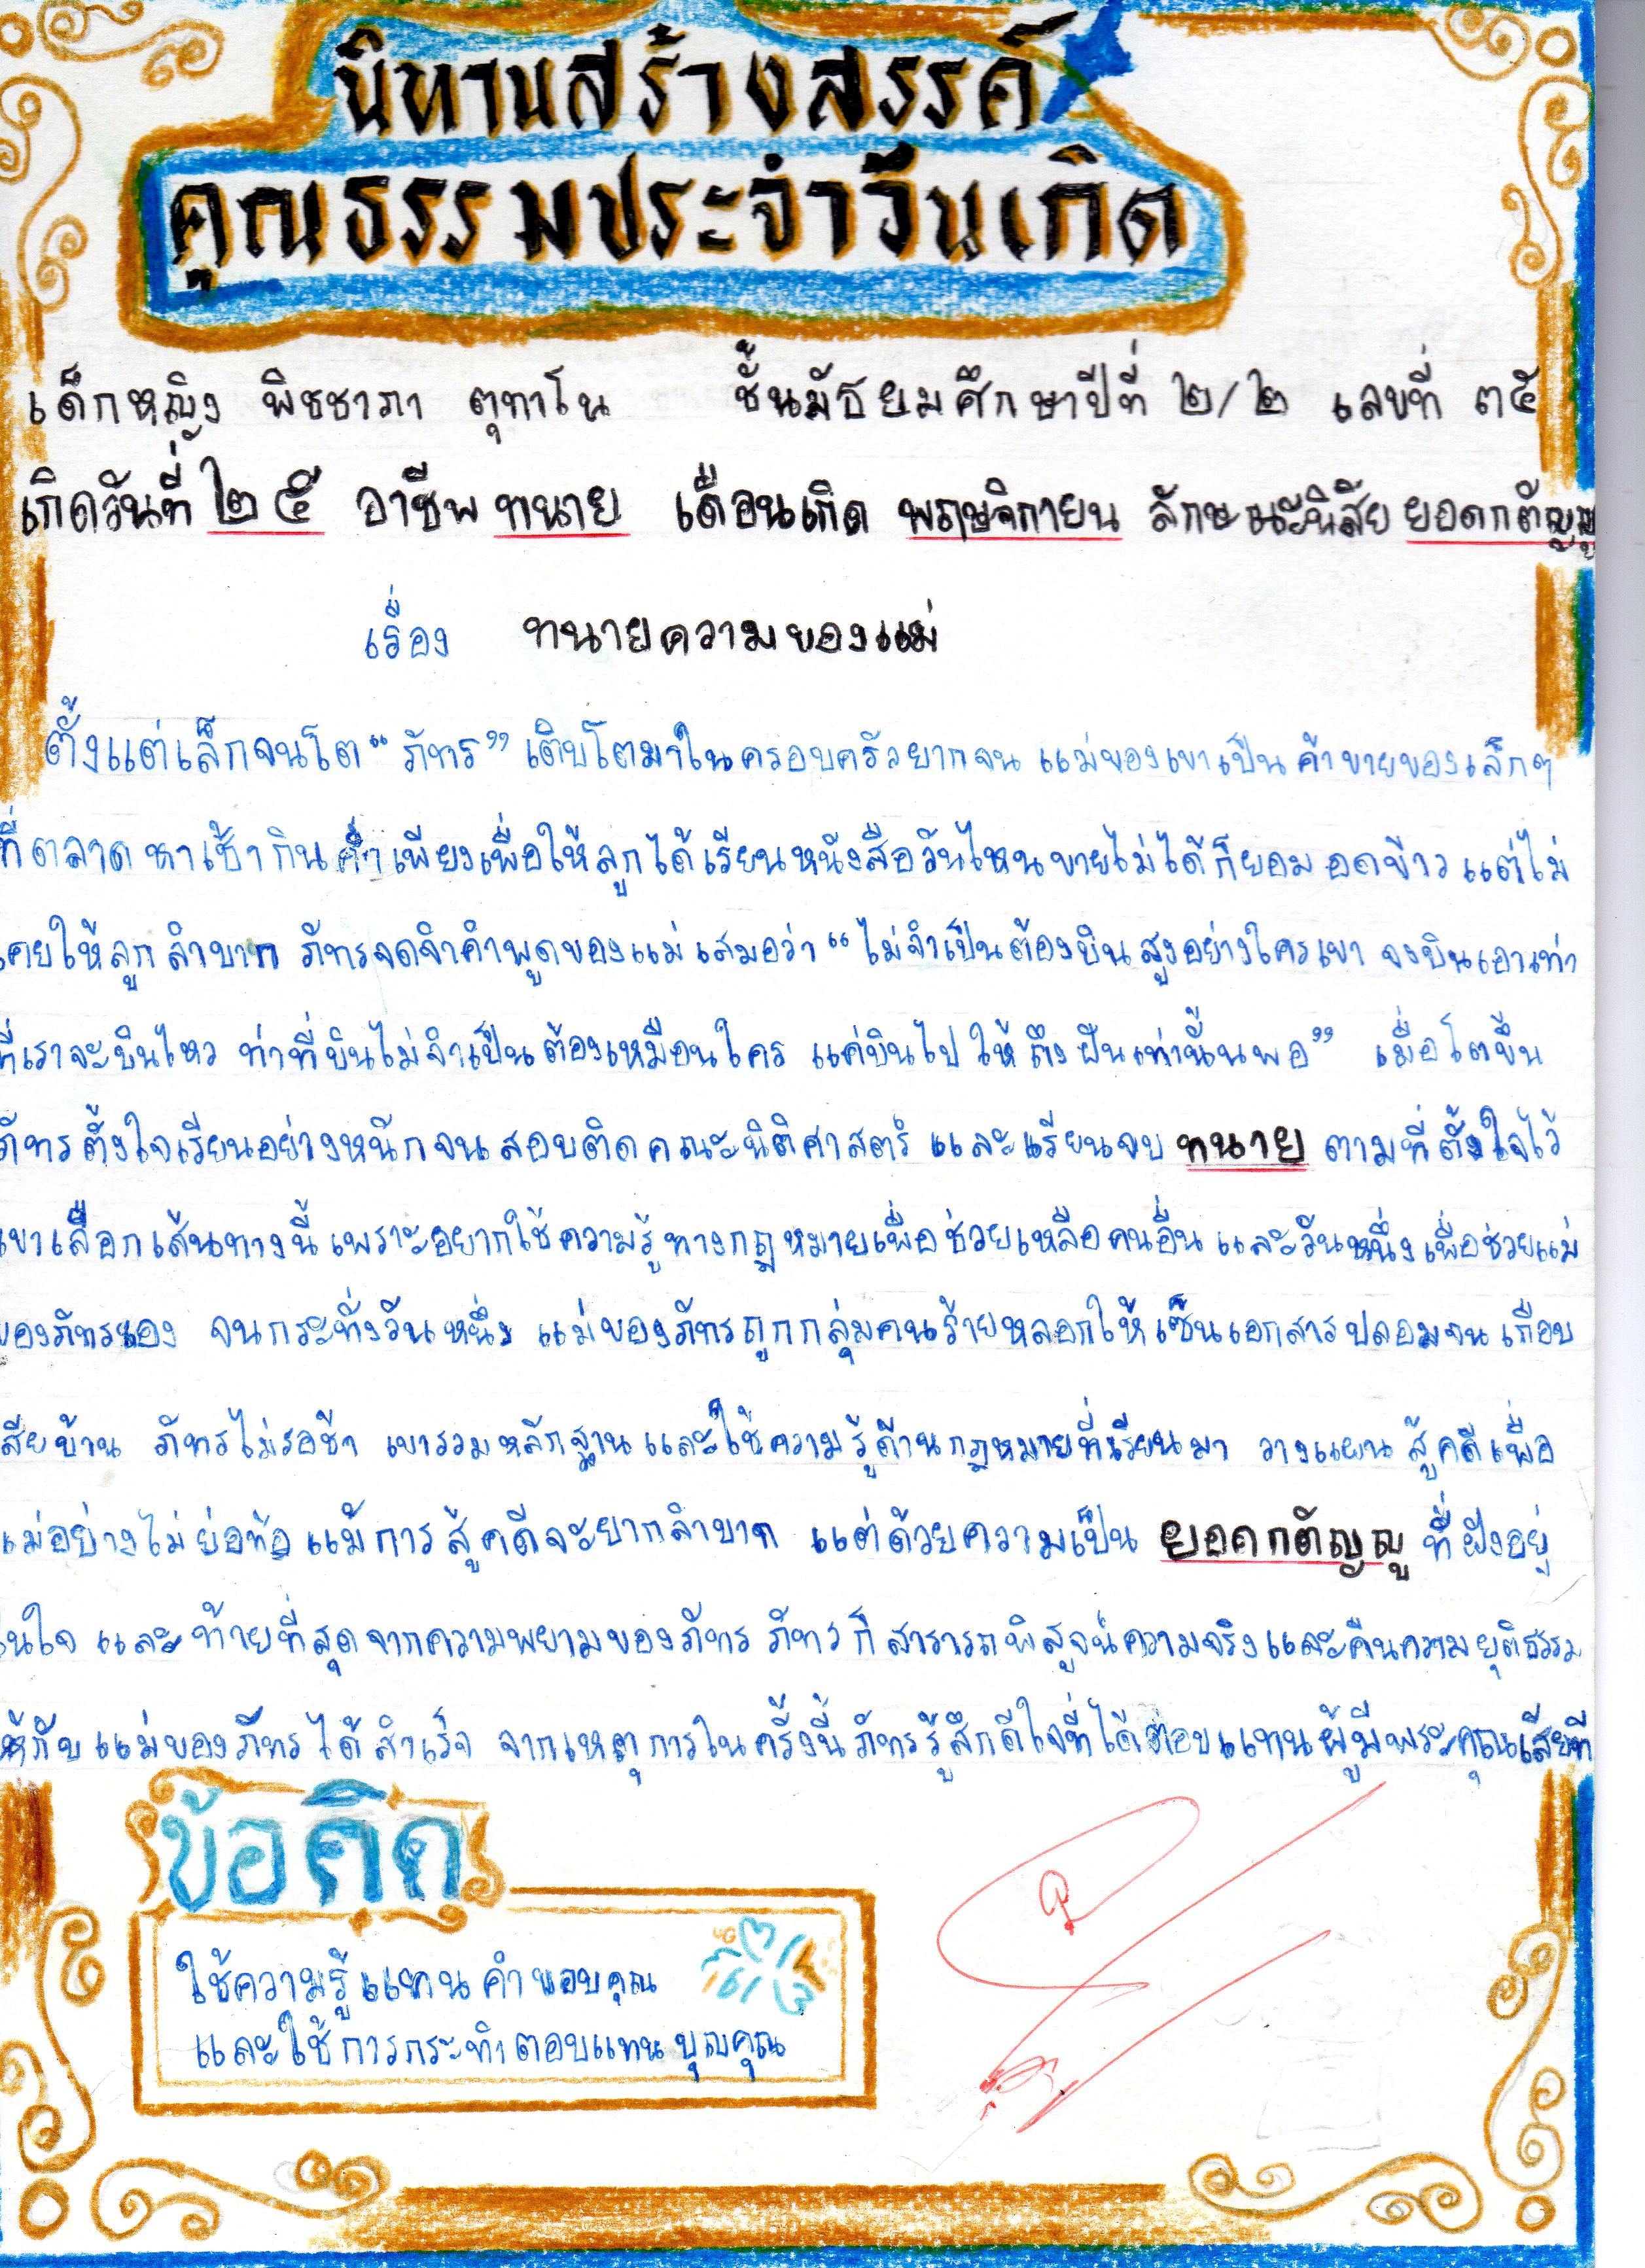 นิทานสร้างสรรค์
คุณธรรมประจำวันเกิด
เด็กหญิง พิชชาภา ตุทาโน ชั้นมัธยมศึกษาปีที่ ๒/๒ เลขที่ ๓๕
เกิดวันที่ ๒๕ อาชีพ ทนาย เดือนเกิด พฤษจิกายน ลักษณะนิสัย ยอดกตัญญู
เรื่อง ทนายความของแม่
ตั้งแต่เล็กจนโต “ ภัทร ” เติบโตมาในครอบครัวยากจน แม่ของเขาเป็น ค้าขายของเล็กๆ
ที่ตลาด หาเช้ากินค่ำ เพียงเพื่อให้ลูกได้เรียนหนังสือวันไหนขายไม่ได้ก็ยอมอดข้าว แต่ไม่
เคยให้ลูกลำบาก ภัทรจดจำคำพูดของแม่เสมอว่า “ ไม่จำเป็นต้องบินสูงอย่างใครเขา จงบินเอาเท่า
ที่เราจะบินไหว ท่าที่บินไม่จำเป็นต้องเหมือนใคร แค่บินไปให้ถึงฝันเท่านั้นพอ ” เมื่อโตขึ้น
ภัทรตั้งใจเรียนอย่างหนักจนสอบติดคณะนิติศาสตร์ และเรียนจบ ทนาย ตามที่ตั้งใจไว้
เขาเลือกเส้นทางนี้เพราะอยากใช้ความรู้ทางกฎหมายเพื่อช่วยเหลือคนอื่น และวันหนึ่งเพื่อช่วยแม่
ของภัทรเอง จนกระทั่งวันหนึ่ง แม่ของภัทรถูกกลุ่มคนร้ายหลอกให้เซ็นเอกสารปลอมจนเกือบ
สียบ้าน ภัทรไม่รอช้า เขารวมหลักฐานและใช้ความรู้ด้านกฎหมายที่เรียนมา วางแผนสู้คดีเพื่อ
แม่อย่างไม่ย่อท้อ แม้การสู้คดีจะยากลำบาก แต่ด้วยความเป็น ยอดกตัญญู ที่ฝังอยู่
นใจ และท้ายที่สุดจากความพยามของภัทร ภัทรก็สารารถพิสูจน์ความจริงและคืนความยุติธรรม
ห้กับแม่ของภัทรได้สำเร็จ จากเหตุการในครั้งนี้ภัทรรู้สึกดีใจที่ได้ตอบแทนผู้มีพระคุณเสียที
ข้อคิด
ใช้ความรู้แทนคำขอบคุณ
และใช้การกระทำตอบแทนบุญคุณ